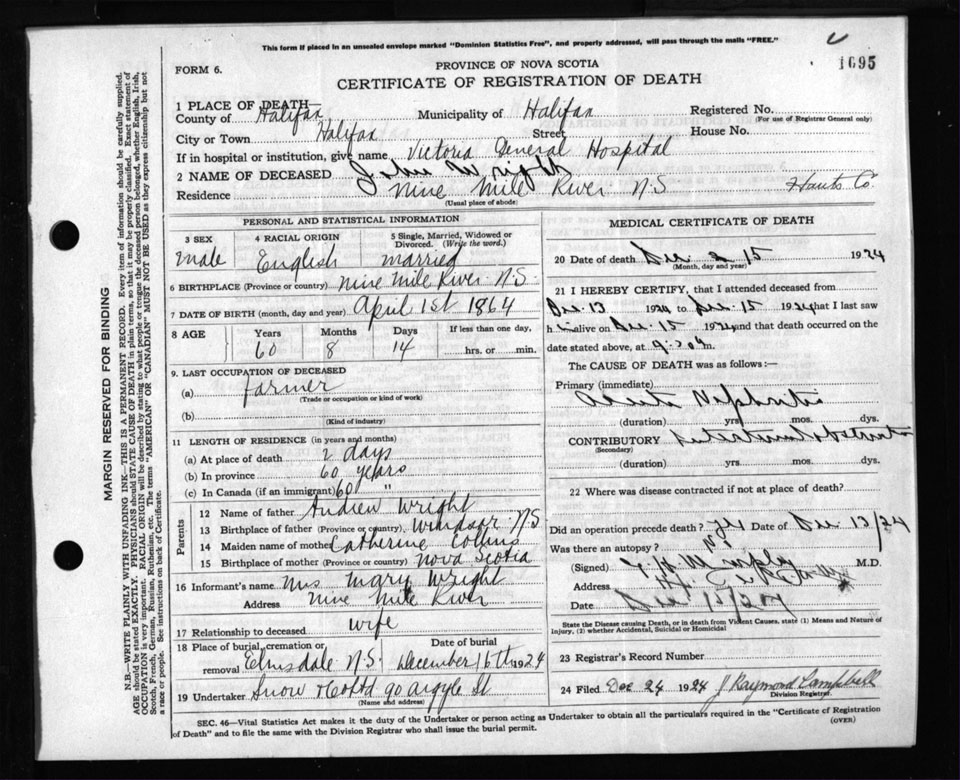 This form if placed in an unsealed envelope marked "Dominion Statistics Free", and properly addressed, will pass through the mails "FREE."
1695
FORM 6.
PROVINCE OF NOVA SCOTIA
CERTIFICATE OF REGISTRATION OF DEATH
1 PLACE OF DEATH—
County of Halifax Municipality of Halifax Registered No.
(For use of Registrar General only)
City or Town Halifax Street House No.
If in hospital or institution, give name Victoria General Hospital
2 NAME OF DECEASED John Wright
Residence Nine Mile River N.S Hants Co.
(Usual place of abode)
PERSONAL AND STATISTICAL INFORMATION
3 SEX 4 RACIAL ORIGIN 5 Single, Married, Widowed or Divorced. (Write the word.)
male English married
6 BIRTHPLACE (Province or country) Nine Mile River N.S
7 DATE OF BIRTH (month, day and year) April 1st 1864
8 AGE Years Months Days If less than one day,
60 8 14 hrs. or min.
9. LAST OCCUPATION OF DECEASED
(a) Farmer
(Trade or occupation or kind of work)
(b)
(Kind of industry)
11 LENGTH OF RESIDENCE (in years and months)
(a) At place of death 2 days
(b) In province 60 years
(c) In Canada (if an immigrant) 60 "
Parents
12 Name of father Andrew Wright
13 Birthplace of father (Province or country) Windsor N S
14 Maiden name of mother Catherine Collins
15 Birthplace of mother (Province or country) Nova Scotia
16 Informant's name Mrs Mary Wright
Address Nine Mile River
17 Relationship to deceased wife
18 Place of burial, cremation or removal Elmsdale N.S. Date of burial December 16th 1924
19 Undertaker Snow & Co Ltd 90 Argyle St
(Name and address)
MEDICAL CERTIFICATE OF DEATH
20 Date of death Dec 15 1924
(Month, day and year)
21 I HEREBY CERTIFY, that I attended deceased from
Dec 13 1924 to Dec 15 1924 that I last saw
him alive on Dec 15 1924 and that death occurred on the
date stated above, at m.
The CAUSE OF DEATH was as follows:—
Primary (immediate)
Acute Nephritis
(duration) yrs. mos. dys.
CONTRIBUTORY Intestinal obstruction
(Secondary)
(duration) yrs. mos. dys.
22 Where was disease contracted if not at place of death?
Did an operation precede death? Yes Date of Dec 13/24
Was there an autopsy? No
(Signed) M.D.
Address
Date Dec 15/24
State the Disease causing Death, or in death from Violent Causes, state (1) Means and Nature of
Injury, (2) whether Accidental, Suicidal or Homicidal
23 Registrar's Record Number
24 Filed Dec 24 1924 J Raymond Campbell
Division Registrar.
SEC. 46—Vital Statistics Act makes it the duty of the Undertaker or person acting as Undertaker to obtain all the particulars required in the "Certificate of Registration
of Death" and to file the same with the Division Registrar who shall issue the burial permit.
(OVER)
MARGIN RESERVED FOR BINDING
N.B.—WRITE PLAINLY WITH UNFADING INK—THIS IS A PERMANENT RECORD. Every item of information should be carefully supplied.
AGE should be stated EXACTLY. PHYSICIANS should STATE CAUSE OF DEATH in plain terms, so that it may be properly classified. Exact statement of
OCCUPATION is very important. RACIAL ORIGIN will be described by stating to what people or tongue the deceased person belonged, whether English, Irish,
Scotch, French, German, Russian, Ruthenian, etc. The terms "AMERICAN" or "CANADIAN" MUST NOT BE USED as they express citizenship but not
a race or people. See instructions on back of Certificate.